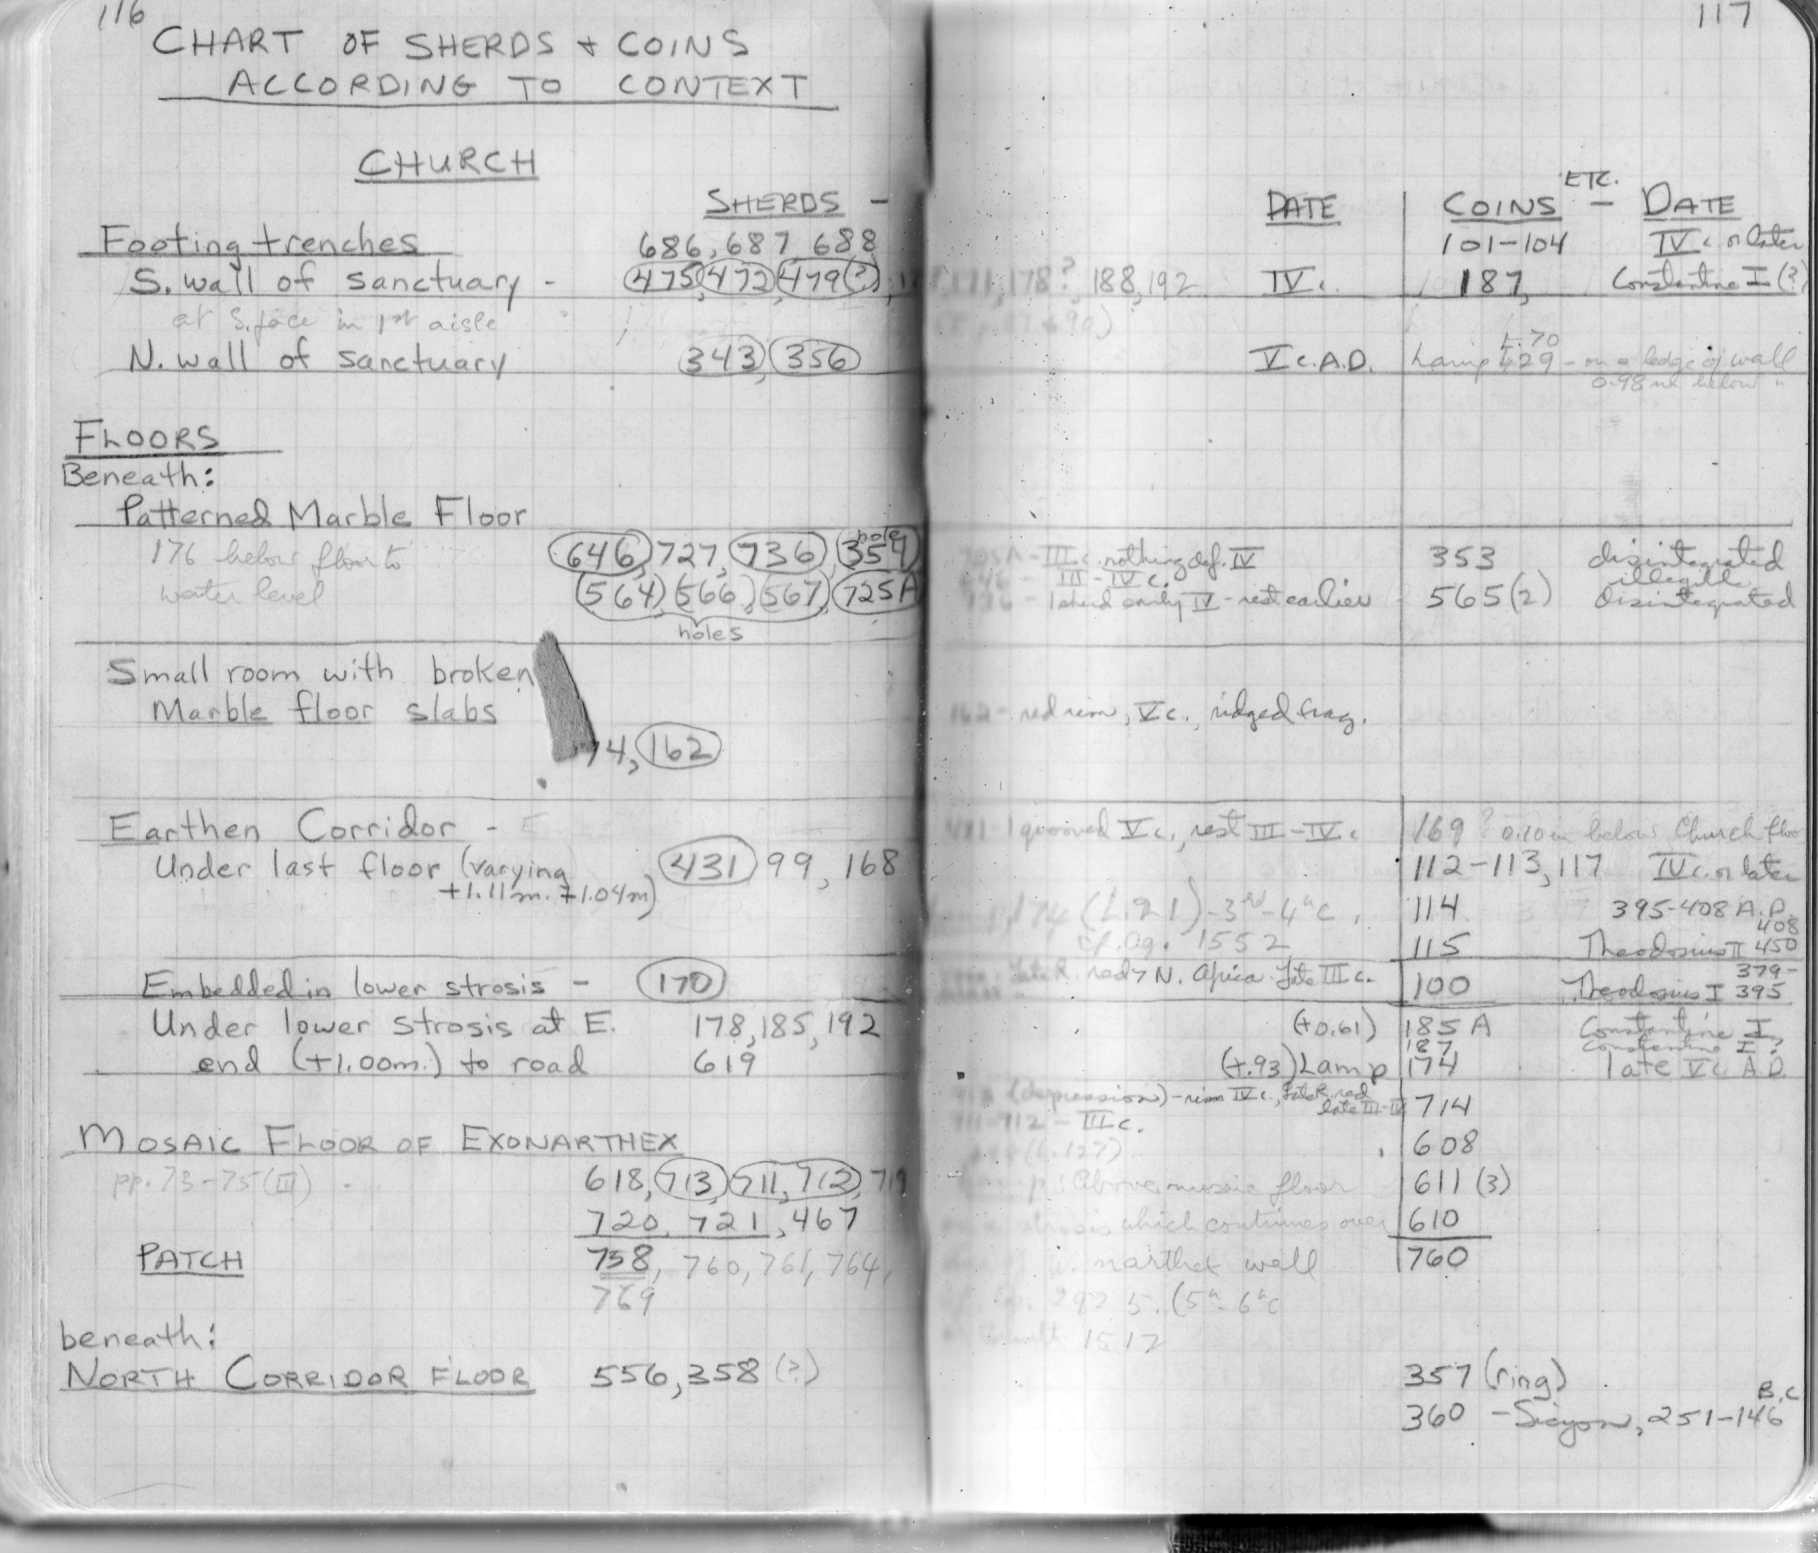 116
CHART OF SHERDS + COINS
ACCORDING TO CONTEXT
CHURCH
SHERDS -
Footing trenches 686, 687 688
S. wall of sanctuary - 475, 472, 479(?),
at S. face in 1st aisle
N. wall of sanctuary 343, 356
FLOORS
Beneath:
Patterned Marble Floor
hole
176 below floor to 646, 727, 736, 359
water level 564, 566, 567, 725A
holes
Small room with broken
Marble floor slabs
74, 162
Earthen Corridor -
Under last floor (varying 431 99, 168
+1.11m. +1.04m)
Embedded in lower strosis - 170
Under lower strosis at E. 178, 185, 192
end (+1.00m.) to road 619
MOSAIC FLOOR OF EXONARTHEX
pp. 73-75 (III) 618, 713, 711, 712, 719
720, 721, 467
PATCH 758, 760, 761, 764,
769
beneath:
NORTH CORRIDOR FLOOR 556, 358 (?)
117
DATE COINS ETC. - DATE
101-104 IV c. or later
171, 178?, 188, 192 IV c. 187, Constantine I (?)
L.70
V c. A.D. Lamp 629 - on a ledge of wall
0.98 m below "
725A - III c. nothing def. IV 353 disintegrated
646 - III-IV c. illegible
736 - 1 sherd early IV - rest earlier 565 (2) Disintegrated
162 - red rim, V c., ridged frag.
431 - 1 grooved V c., rest III-IV c. 169? 0.10 m below Church floor
112-113, 117 IV c. or later
174 (L.21) - 3rd-4th c. 114 395-408 A.D.
cf. Ag. 1552 115 Theodosius II 408 450
Late R. red, N. Africa Late III c. 100 Theodosius I 379-395
(+0.61) 185 A Constantine I
187 Constantine I?
(+.93) Lamp 174 late V c A.D.
713 (depression) - rim IV c., Late R. red late III-IV 714
711-712 - III c.
(L.127) 608
Above mosaic floor 611 (3)
which continues over 610
narthex wall 760
292 5. (5th-6th c
1512
357 (ring)
360 - Sicyon, 251-146 B.C